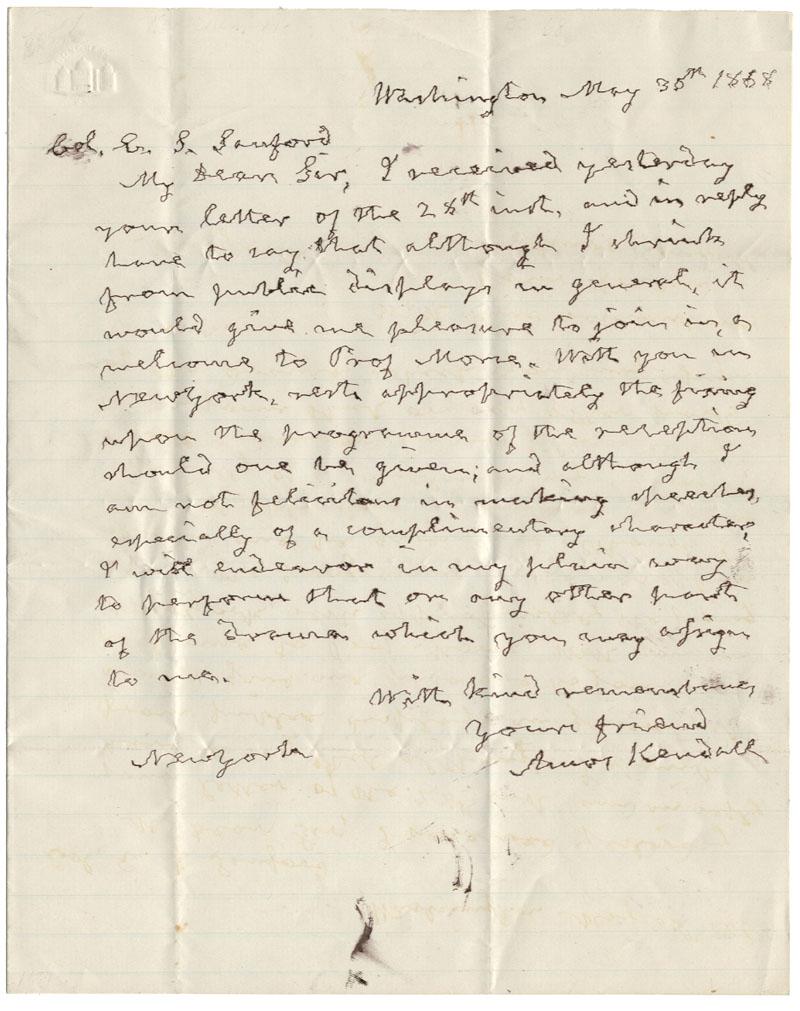 Washington May 30th 1868
Col. E. S. Sanford
My Dear Sir, I received yesterday
your letter of the 28th inst. and in reply
have to say that although I shrink
from public displays in general, it
would give me pleasure to join in a
welcome to Prof Morse. With you in
New York, rests appropriately the fixing
upon the programme of the reception
should one be given; and although I
am not felicitous in making speeches,
especially of a complimentary character,
I will endeavor in my plain way
to perform that or any other part
of the drama which you may assign
to me.
With kind remembrances
Your friend
Amos Kendall
New York